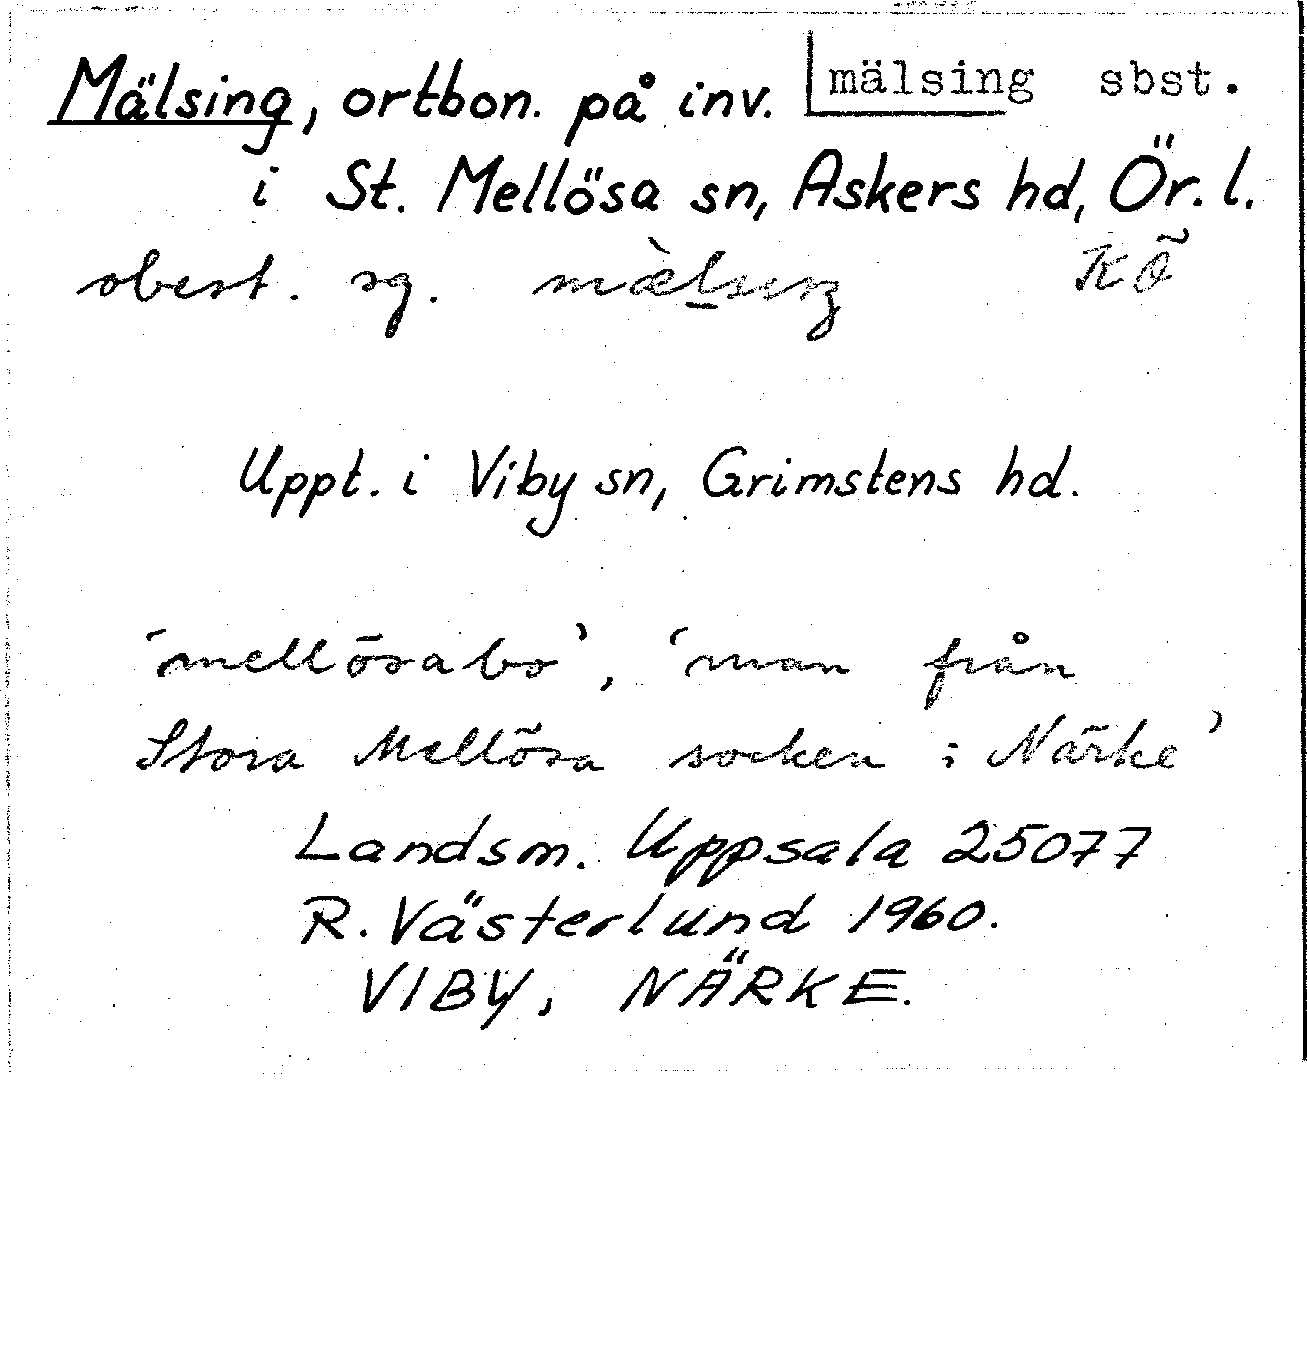 Mälsing, ortbon. på inv. mälsing sbst.
i St. Mellösa sn, Askers hd, Ör. l.
obest. sg. mæ̀lsiŋ KÖ
Uppt. i Viby sn, Grimstens hd.
‘mellösabo’, ‘man från
Stora Mellösa socken i Närke’
Landsm. Uppsala 25077
R. Västerlund 1960.
VIBY, NÄRKE.